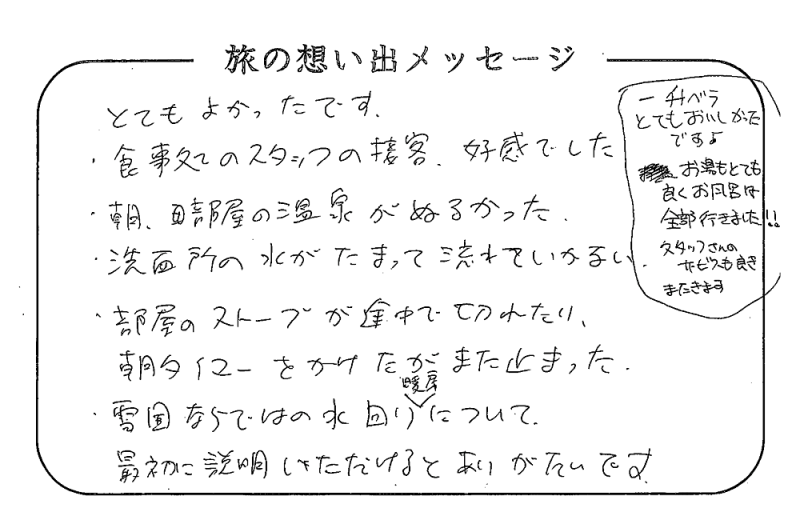 旅の想い出メッセージ
とてもよかったです.
・食事処でのスタッフの接客、好感でした
・朝、お部屋の温泉がぬるかった.
・洗面所の水がたまって流れていかない.
・部屋のストーブが途中で切れたり、
朝タイマーをかけたがまた止まった.
暖房
・雪国ならではの水回りについて.
最初に説明いただけるとありがたいです.
とてもおいしかった
ですよ
お湯もとても
良くお風呂は
全部行きました!!
スタッフさんの
サービスも良き
またきます